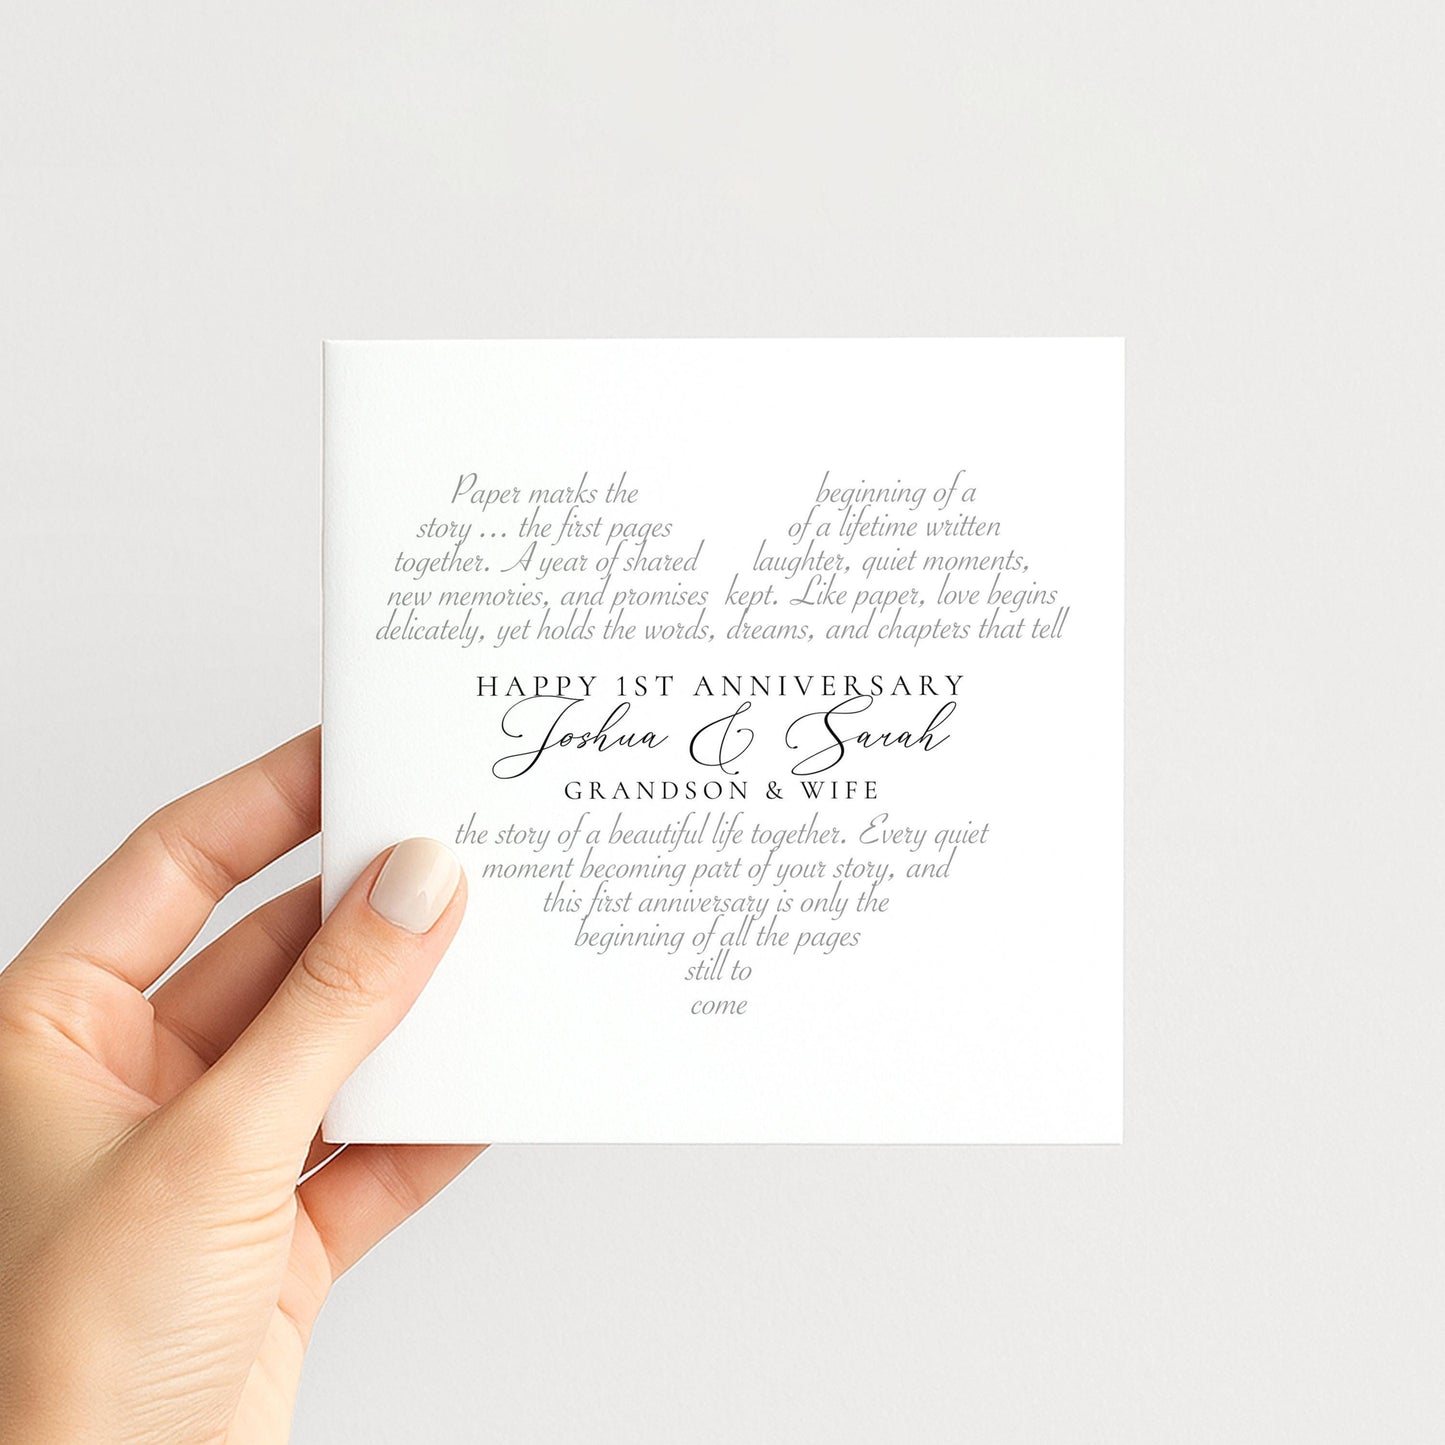 Paper marks the beginning of a
story ... the first pages of a lifetime written
together. A year of shared laughter, quiet moments,
new memories, and promises kept. Like paper, love begins
delicately, yet holds the words, dreams, and chapters that tell
HAPPY 1ST ANNIVERSARY
Joshua & Sarah
GRANDSON & WIFE
the story of a beautiful life together. Every quiet
moment becoming part of your story, and
this first anniversary is only the
beginning of all the pages
still to
come